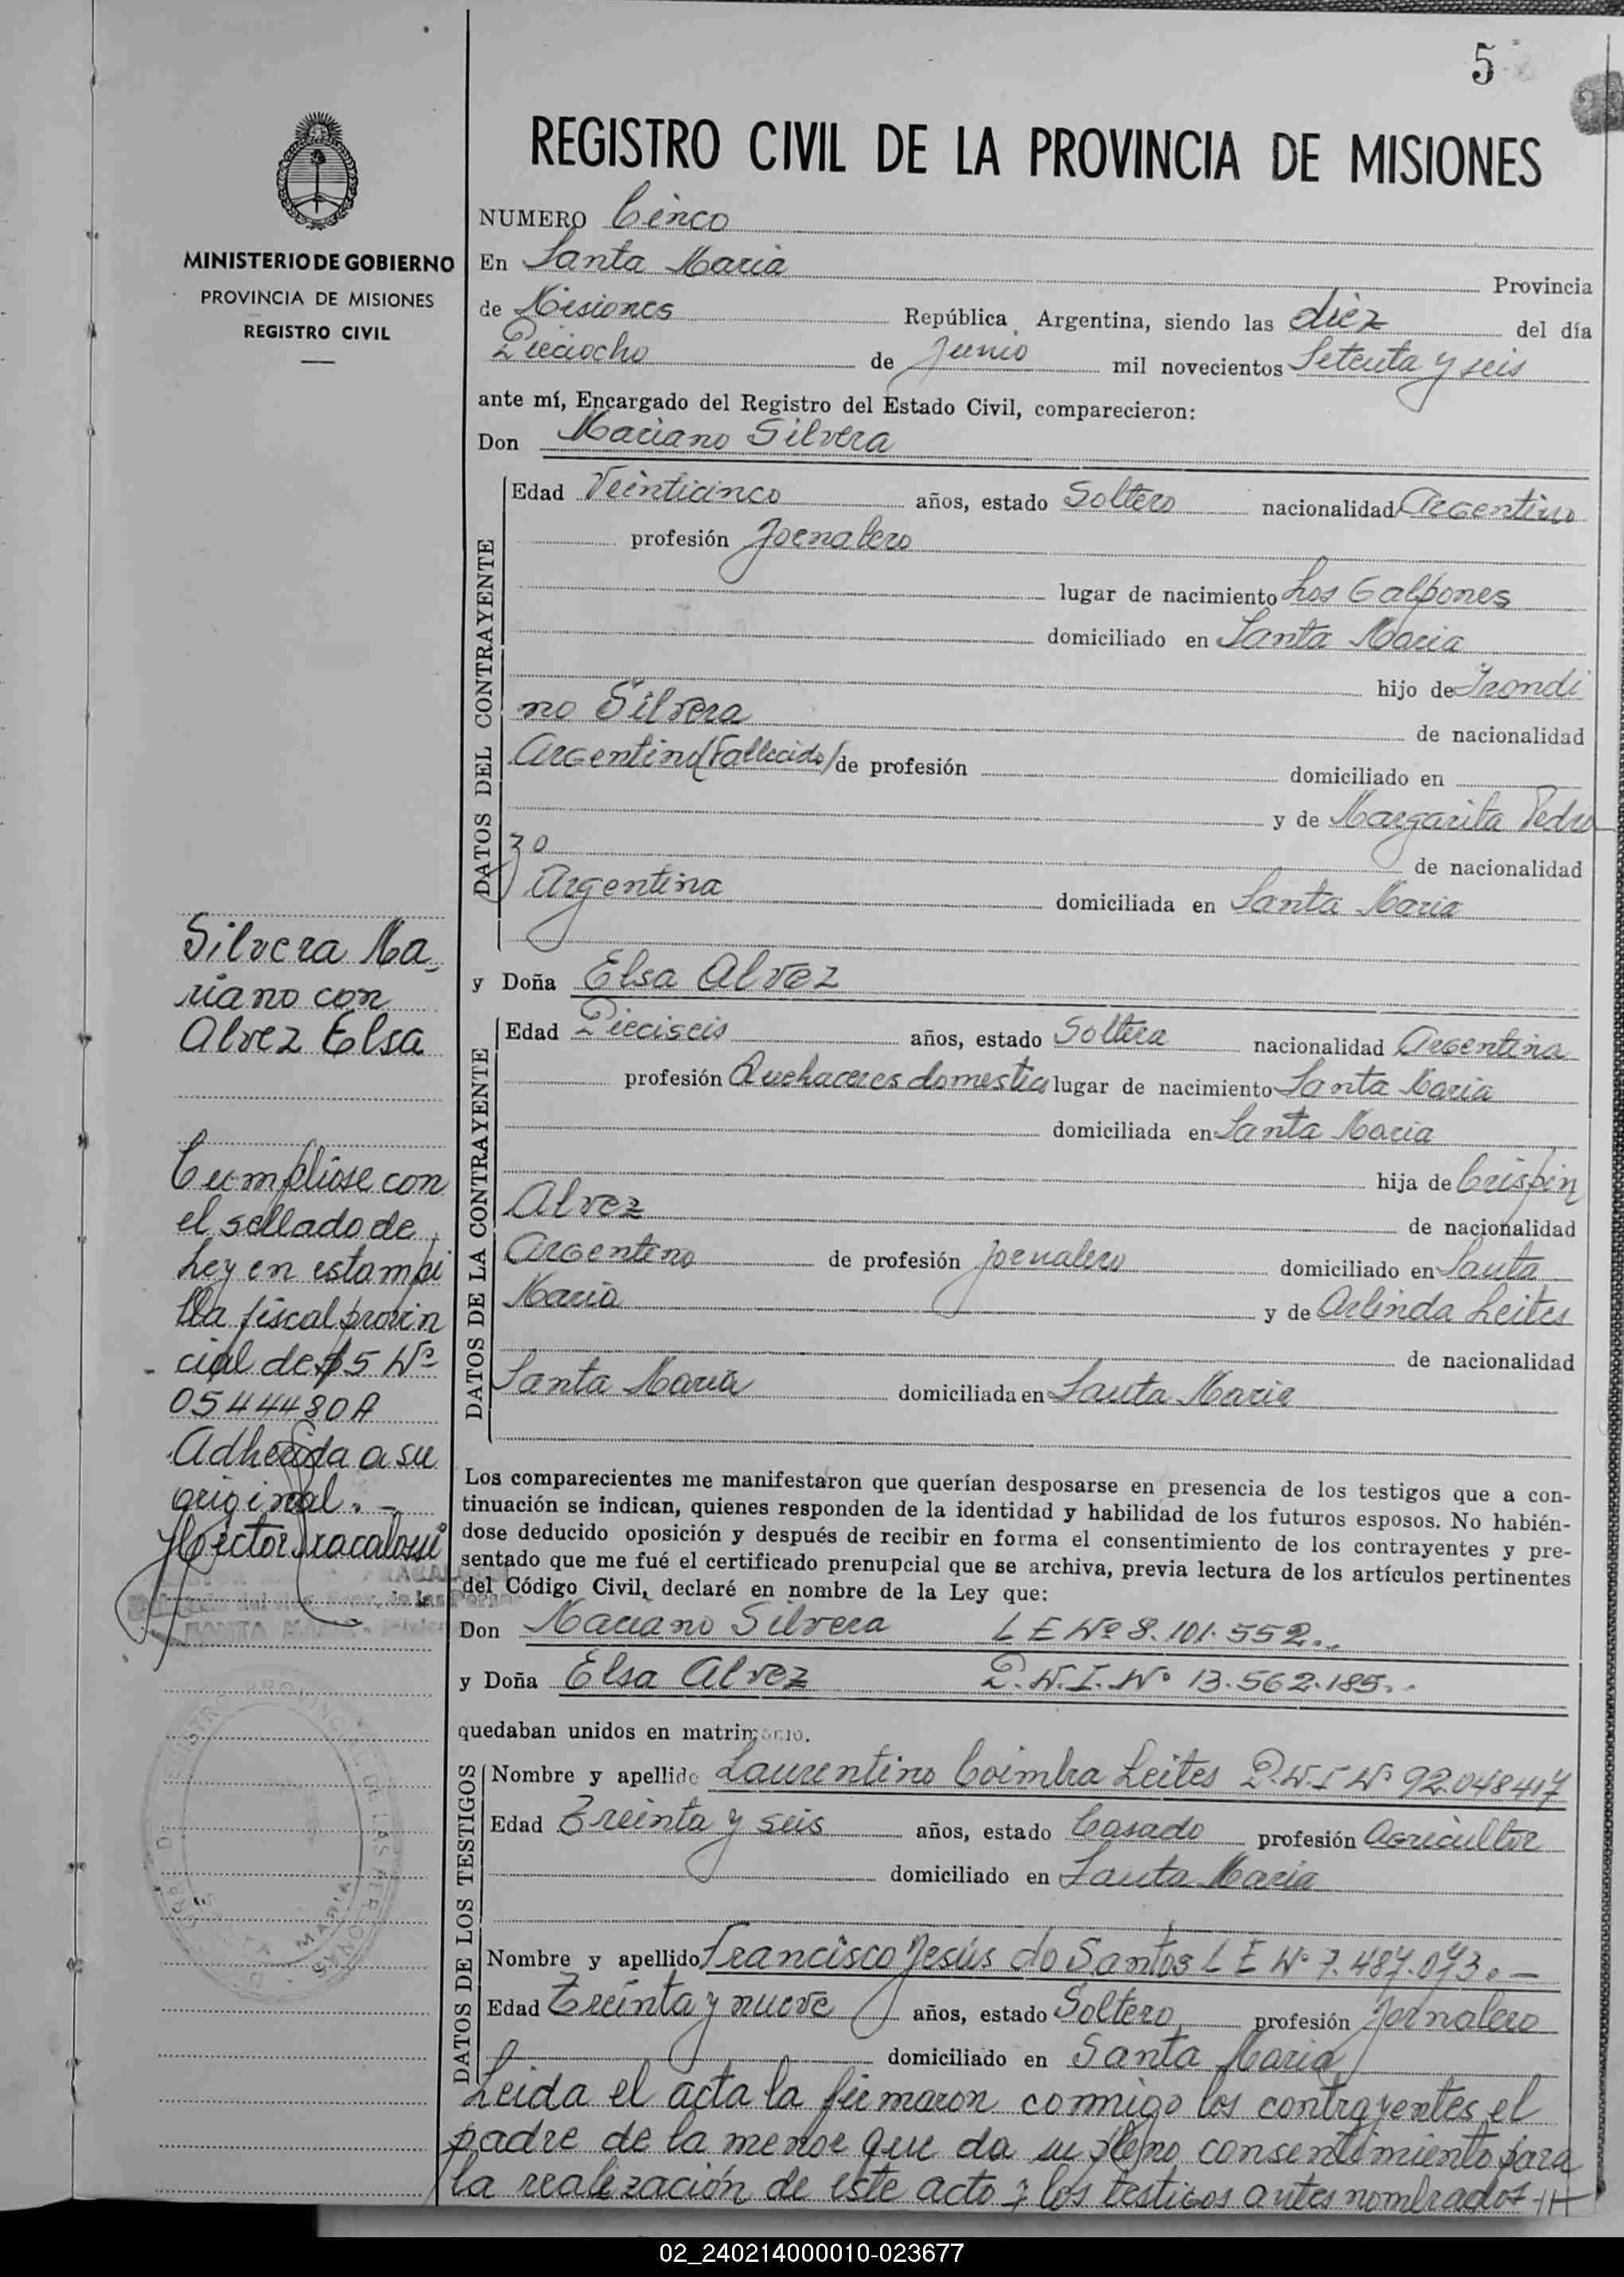 5
REGISTRO CIVIL DE LA PROVINCIA DE MISIONES
MINISTERIO DE GOBIERNO
PROVINCIA DE MISIONES
REGISTRO CIVIL
NUMERO Cinco
En Santa Maria Provincia
de Misiones República Argentina, siendo las diez del día
Dieciocho de Junio mil novecientos Setenta y seis
ante mí, Encargado del Registro del Estado Civil, comparecieron:
Don Mariano Silvera
DATOS DEL CONTRAYENTE
Edad Veinticinco años, estado Soltero nacionalidad Argentino
profesión Jornalero
lugar de nacimiento Los Galpones
domiciliado en Santa Maria
hijo de Trondi
no Silvera de nacionalidad
Argentino (Fallecido) de profesión domiciliado en
y de Margarita Pedro
zo de nacionalidad
Argentina domiciliada en Santa Maria
y Doña Elsa Alvez
DATOS DE LA CONTRAYENTE
Edad Dieciseis años, estado Soltera nacionalidad Argentina
profesión Quehaceres domestico lugar de nacimiento Santa Maria
domiciliada en Santa Maria
hija de Crispin
Alvez de nacionalidad
Argentino de profesión Jornalero domiciliado en Santa
Maria y de Arlinda Leites
de nacionalidad
Santa Maria domiciliada en Santa Maria
Los comparecientes me manifestaron que querían desposarse en presencia de los testigos que a con-
tinuación se indican, quienes responden de la identidad y habilidad de los futuros esposos. No habién-
dose deducido oposición y después de recibir en forma el consentimiento de los contrayentes y pre-
sentado que me fué el certificado prenupcial que se archiva, previa lectura de los artículos pertinentes
del Código Civil, declaré en nombre de la Ley que:
Don Mariano Silvera L E Nº 8.101.552..
y Doña Elsa Alvez D.N.I.Nº 13.562.185..
quedaban unidos en matrimonio.
DATOS DE LOS TESTIGOS
Nombre y apellido Laurentino Coimbra Leites D.N.I Nº 92.048417
Edad Treinta y seis años, estado Casado profesión Agricultor
domiciliado en Santa Maria
Nombre y apellido Francisco Jesús do Santos L E Nº 7.487.073.-
Edad Treinta y nueve años, estado Soltero profesión Jornalero
domiciliado en Santa Maria
Leida el acta la firmaron conmigo los contrayentes, el
padre de la menor que da su pleno consentimiento para
la realización de este acto y los testigos antes nombrados
Silvera Ma-
riano con
Alvez Elsa
Cumpliose con
el sellado de
Ley en estampi
lla fiscal provin
cial de $5 Nº
0544480A
Adherida a su
original.-
Hector
02_240214000010-023677